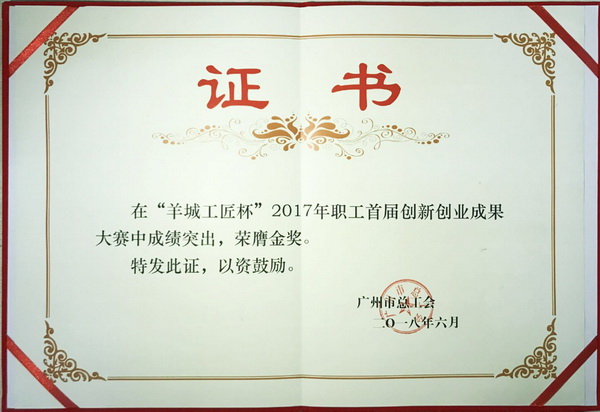 证书
在“羊城工匠杯”2017年职工首届创新创业成果
大赛中成绩突出，荣膺金奖。
特发此证，以资鼓励。
广州市总工会
二〇一八年六月